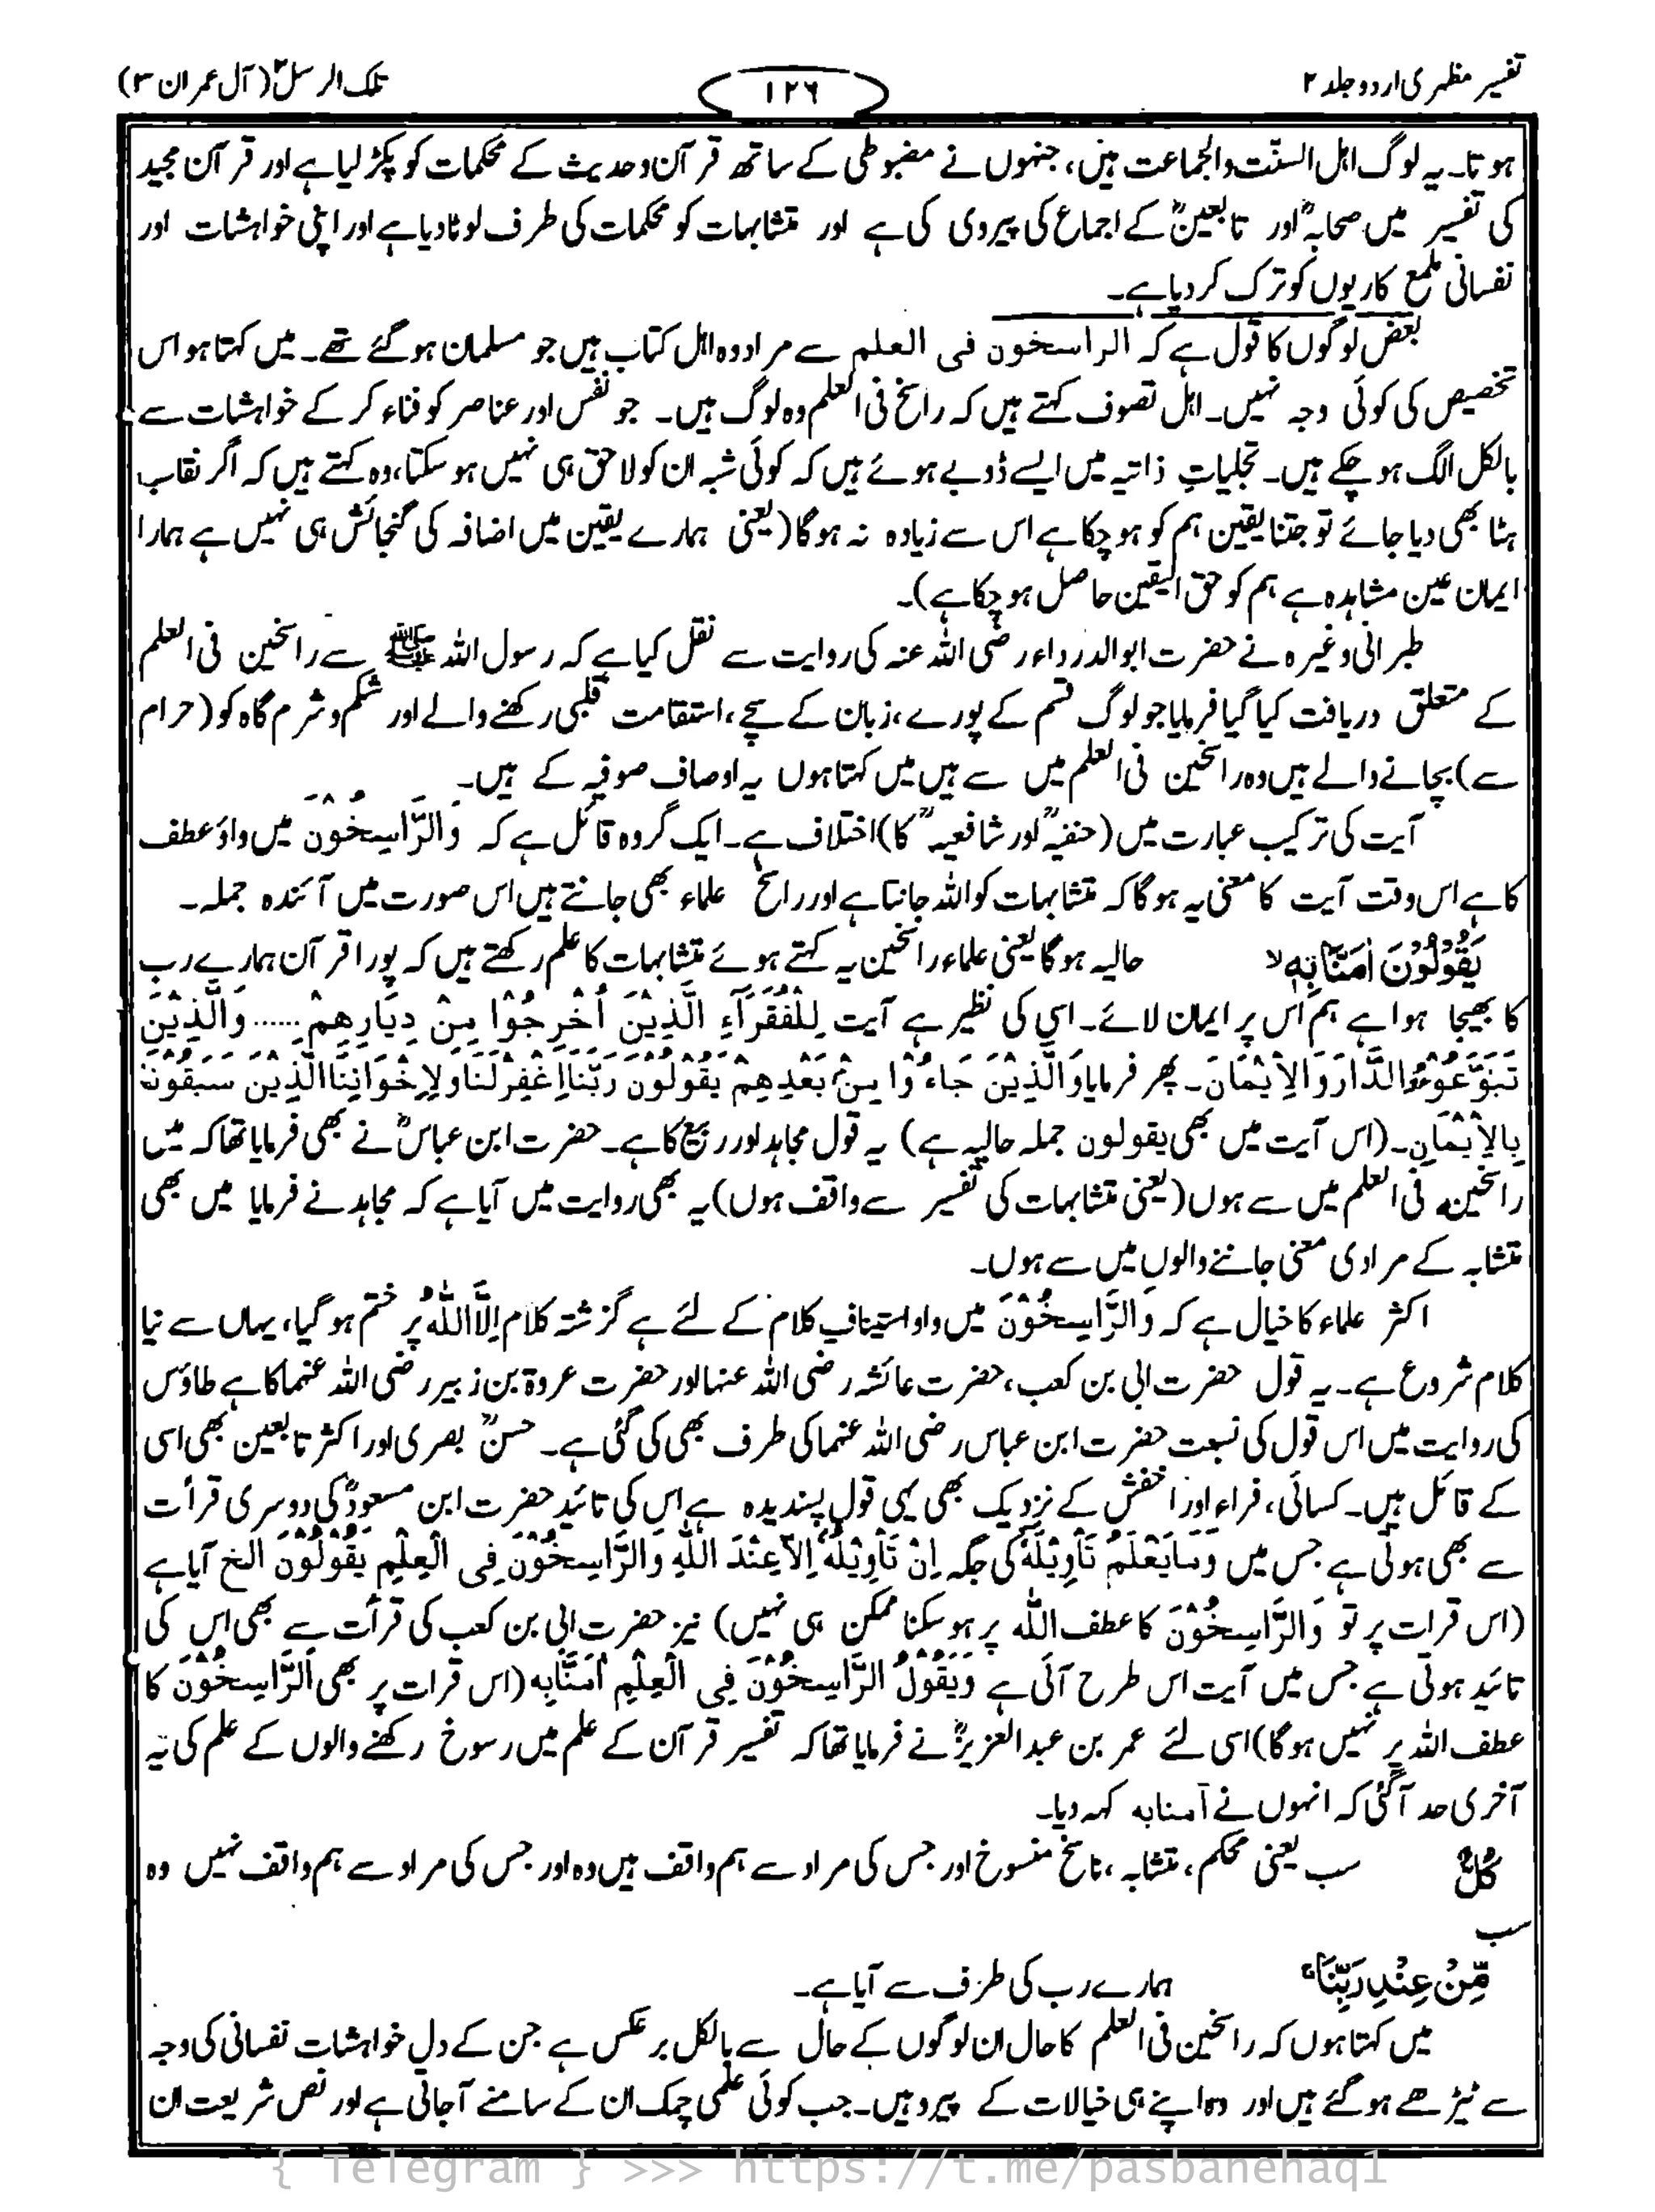 تفسیر مظہری اردو جلد ۲
۱۲۶
تلک الرسل ۳ (آل عمران ۳)
ہوتا۔ یہ لوگ اہل السنّت والجماعت ہیں، جنہوں نے مضبوطی کے ساتھ قرآن وحدیث کے محکمات کو پکڑ لیا ہے اور قرآن مجید
کی تفسیر میں صحابہؓ اور تابعینؒ کے اجماع کی پیروی کی ہے اور متشابہات کو محکمات کی طرف لوٹا دیا ہے اور اپنی خواہشات اور
نفسانی ملمع کاریوں کو ترک کر دیا ہے۔
بعض لوگوں کا قول ہے کہ الراسخون فی العلم سے مراد وہ اہل کتاب ہیں جو مسلمان ہو گئے تھے۔ میں کہتا ہو اس
تخصیص کی کوئی وجہ نہیں۔ اہل تصوف کہتے ہیں کہ راسخ فی العلم وہ لوگ ہیں۔ جو نفس اور عناصر کو فناء کر کے خواہشات سے
بالکل الگ ہو چکے ہیں۔ تجلیاتِ ذاتیہ میں ایسے ڈوبے ہوئے ہیں کہ کوئی شبہ ان کو لاحق ہی نہیں ہو سکتا، وہ کہتے ہیں کہ اگر نقاب
ہٹا بھی دیا جائے تو جتنا یقین ہم کو ہو چکا ہے اس سے زیادہ نہ ہوگا (یعنی ہمارے یقین میں اضافہ کی گنجائش ہی نہیں ہے ہمارا
ایمان عین مشاہدہ ہے ہم کو حق الیقین حاصل ہو چکا ہے)۔
طبرانی وغیرہ نے حضرت ابوالدرداء رضی اللہ عنہ کی روایت سے نقل کیا ہے کہ رسول اللہ ﷺ سے راسخین فی العلم
کے متعلق دریافت کیا گیا فرمایا جو لوگ قسم کے پورے، زبان کے سچے، استقامت قلبی رکھنے والے اور شکم و شرم گاہ کو (حرام
سے) بچانے والے ہیں وہ راسخین فی العلم میں سے ہیں میں کہتا ہوں یہ اوصاف صوفیہ کے ہیں۔
آیت کی ترکیب عبارت میں (حنفیہؒ اور شافعیہؒ کا) اختلاف ہے۔ ایک گروہ قائل ہے کہ وَالرَّاسِخُوْنَ میں واؤ عطف
کا ہے اس وقت آیت کا معنی یہ ہوگا کہ متشابہات کو اللہ جانتا ہے اور راسخ علماء بھی جانتے ہیں اس صورت میں آئندہ جملہ۔
یَقُوْلُوْنَ اٰمَنَّا بِہٖ ۙ حالیہ ہوگا یعنی علماء راسخین یہ کہتے ہوئے متشابہات کا علم رکھتے ہیں کہ پورا قرآن ہمارے رب
کا بھیجا ہوا ہے ہم اس پر ایمان لائے۔ اسی کی نظیر ہے آیت لِلْفُقَرَآءِ الَّذِیْنَ اُخْرِجُوْا مِنْ دِیَارِھِمْ...... وَالَّذِیْنَ
تَبَوَّءُوْا الدَّارَ وَالْاِیْمَانَ۔ پھر فرمایا وَالَّذِیْنَ جَاءُوْا مِنْ بَعْدِھِمْ یَقُوْلُوْنَ رَبَّنَا اغْفِرْلَنَا وَلِاِخْوَانِنَا الَّذِیْنَ سَبَقُوْنَا
بِالْاِیْمَانِ۔ (اس آیت میں بھی یقولون جملہ حالیہ ہے) یہ قول مجاہد اور ربیع کا ہے۔ حضرت ابن عباسؓ نے بھی فرمایا تھا کہ میں
راسخین فی العلم میں سے ہوں (یعنی متشابہات کی تفسیر سے واقف ہوں) یہ بھی روایت میں آیا ہے کہ مجاہد نے فرمایا میں بھی
متشابہ کے مرادی معنی جاننے والوں میں سے ہوں۔
اکثر علماء کا خیال ہے کہ وَالرَّاسِخُوْنَ میں واو استینافِ کلام کے لئے ہے گزشتہ کلام اِلَّا اللّٰہُ پر ختم ہو گیا، یہاں سے نیا
کلام شروع ہے۔ یہ قول حضرت ابی بن کعب، حضرت عائشہ رضی اللہ عنہا اور حضرت عروۃ بن زبیر رضی اللہ عنہما کا ہے طاؤس
کی روایت میں اس قول کی نسبت حضرت ابن عباس رضی اللہ عنہما کی طرف بھی کی گئی ہے۔ حسنؒ بصری اور اکثر تابعین بھی اسی
کے قائل ہیں۔ کسائی، فراء اور اخفش کے نزدیک بھی یہی قول پسندیدہ ہے اس کی تائید حضرت ابن مسعودؓ کی دوسری قرأت
سے بھی ہوتی ہے جس میں وَمَا یَعْلَمُ تَأْوِیْلَہٗ کی جگہ اِنْ تَأْوِیْلُہٗ اِلَّا عِنْدَ اللّٰہِ وَالرَّاسِخُوْنَ فِی الْعِلْمِ یَقُوْلُوْنَ الخ آیا ہے
(اس قرات پر تو وَالرَّاسِخُوْنَ کا عطف اللہ پر ہو سکنا ممکن ہی نہیں) نیز حضرت ابی بن کعب کی قرأت سے بھی اس کی
تائید ہوتی ہے جس میں آیت اس طرح آئی ہے وَیَقُوْلُ الرَّاسِخُوْنَ فِی الْعِلْمِ اٰمَنَّا بِہٖ (اس قرات پر بھی اَلرَّاسِخُوْنَ کا
عطف اللہ پر نہیں ہوگا) اسی لئے عمر بن عبدالعزیزؒ نے فرمایا تھا کہ تفسیر قرآن کے علم میں رسوخ رکھنے والوں کے علم کی یہ
آخری حد آ گئی کہ انہوں نے آمنا بہ کہہ دیا۔
کُلٌّ سب یعنی محکم، متشابہ، ناسخ منسوخ اور جس کی مراد سے ہم واقف ہیں وہ اور جس کی مراد سے ہم واقف نہیں وہ
سب
مِّنْ عِنْدِ رَبِّنَا ۚ ہمارے رب کی طرف سے آیا ہے۔
میں کہتا ہوں کہ راسخین فی العلم کا حال ان لوگوں کے حال سے بالکل برعکس ہے جن کے دل خواہشات نفسانی کی وجہ
سے ٹیڑھے ہو گئے ہیں اور وہ اپنے ہی خیالات کے پیرو ہیں۔ جب کوئی علمی چمک ان کے سامنے آ جاتی ہے اور نص شریعت ان
{ Telegram } >>> https://t.me/pasbanehaq1